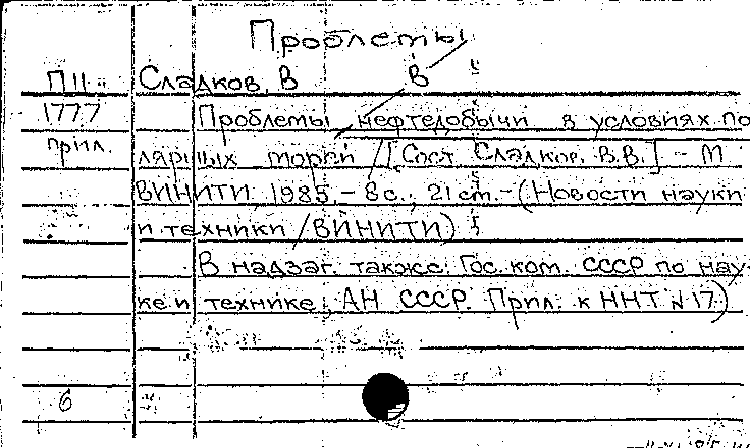 Проблемы
П11 Сладков, В В
1777 Проблемы нефтедобычи в условиях по
прил. лярных морей / [Сост. Сладков. В.В.] - М
ВИНИТИ, 1985. - 8 с.; 21 см. - (Новости науки
и техники / ВИНИТИ)
В надзаг. также: Гос. ком. СССР по нау-
ке и технике, АН СССР. Прил. к ННТ N 17)
6